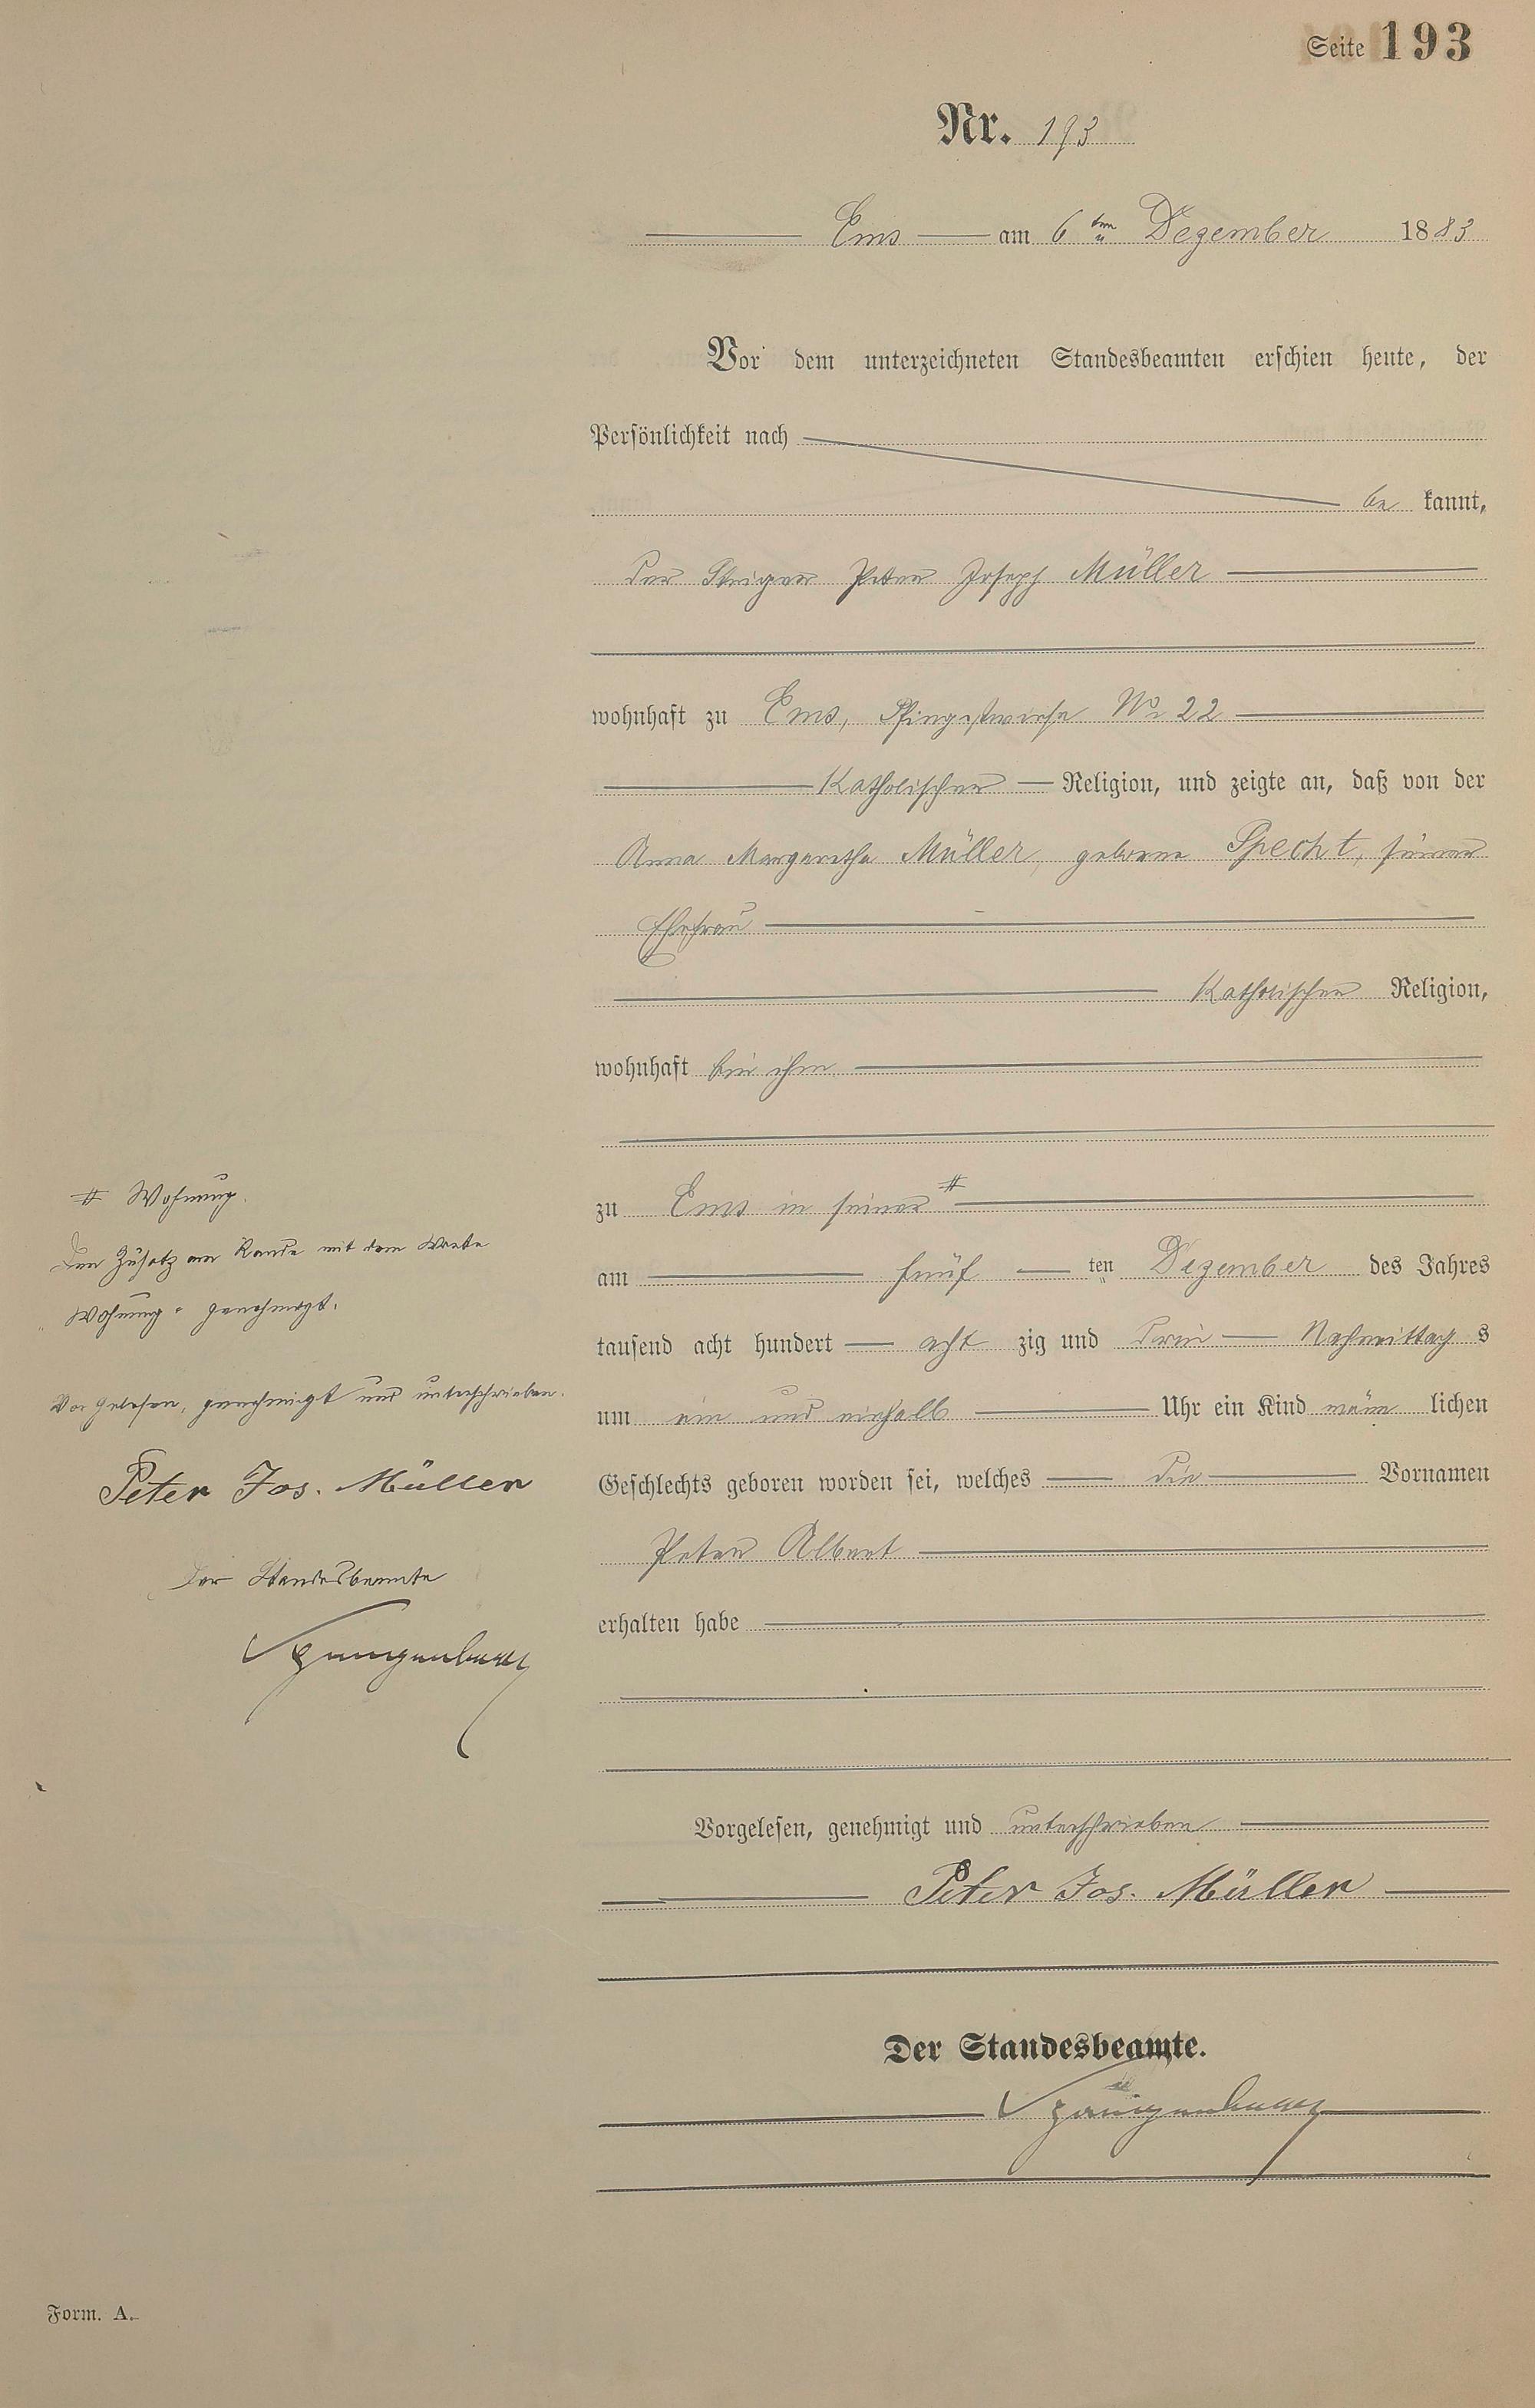 Seite 193
Nr. 193
Ems am 6ten Dezember 1883
Vor dem unterzeichneten Standesbeamten erschien heute, der
Persönlichkeit nach
be kannt,
der Steiger Peter Joseph Müller
wohnhaft zu Ems, Pfingstwiese No 22
Katholischer Religion, und zeigte an, daß von der
Anna Margaretha Müller, geborne Specht, seiner
Ehefrau
Katholischer Religion,
wohnhaft bei ihm
zu Ems in seiner #
am fünf ten Dezember des Jahres
tausend acht hundert acht zig und drei Nachmittag s
um ein und einhalb Uhr ein Kind männ lichen
Geschlechts geboren worden sei, welches die Vornamen
Peter Albert
erhalten habe
Vorgelesen, genehmigt und unterschrieben
Peter Jos. Müller
Der Standesbeamte.
# Wohnung.
Den Zusatz am Rande mit dem Worte
„Wohnung" genehmigt.
Vorgelesen, genehmigt und unterschrieben.
Peter Jos. Müller
Der Standesbeamte
Form. A.